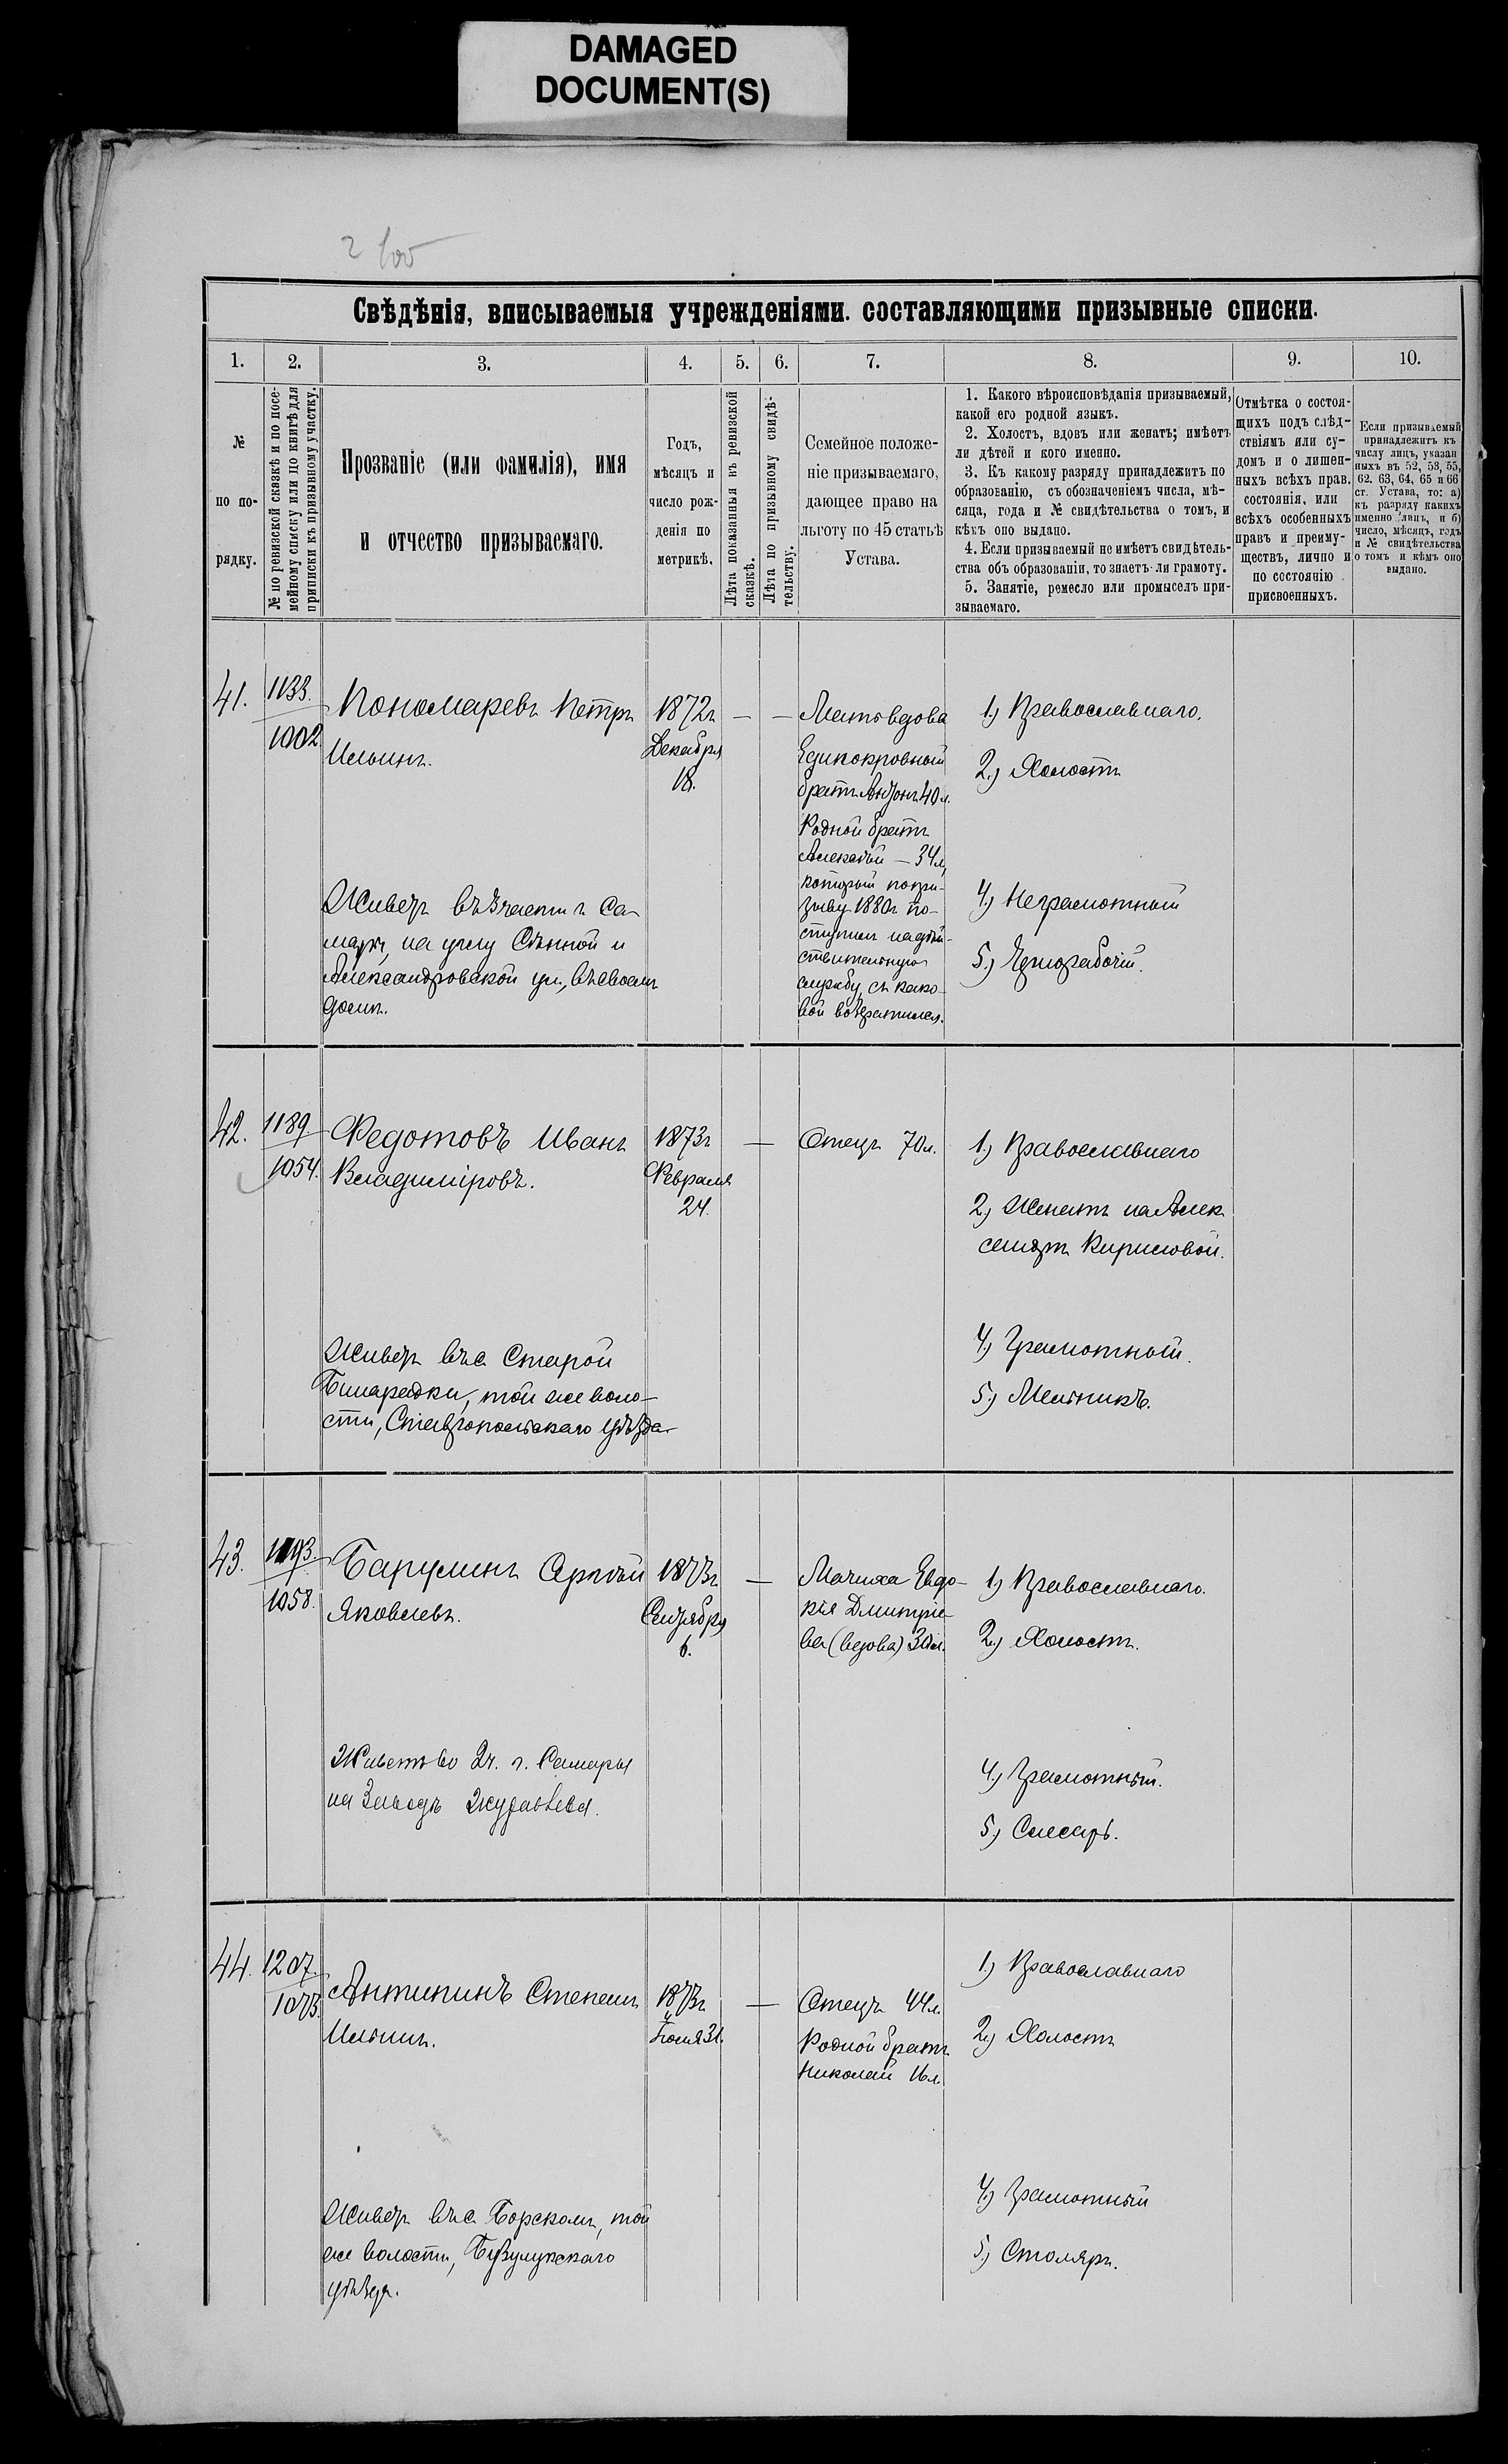 DAMAGED
DOCUMENT(S)
Свѣдѣнія, вписываемыя учрежденіями. составляющими призывные списки.
1.
2.
3.
4.
5.
6.
7.
8.
9.
10.
№
по по-
рядку.
№ по ревизской сказкѣ и по посе-
мейному списку или по книгѣ для
приписки къ призывному участку.
Прозваніе (или фамилія), имя
и отчество призываемаго.
Годъ,
мѣсяцъ и
число рож-
денія по
метрикѣ.
Лѣта показанныя въ ревизской
сказкѣ.
Лѣта по призывному свидѣ-
тельству.
Семейное положе-
ніе призываемаго,
дающее право на
льготу по 45 статьѣ
Устава.
1. Какого вѣроисповѣданія призываемый,
какой его родной языкъ.
2. Холостъ, вдовъ или женатъ; имѣетъ
ли дѣтей и кого именно.
3. Къ какому разряду принадлежитъ по
образованію, съ обозначеніемъ числа, мѣ-
сяца, года и № свидѣтельства о томъ, и
кѣмъ оно выдано.
4. Если призываемый не имѣетъ свидѣтель-
ства объ образованіи, то знаетъ ли грамоту.
5. Занятіе, ремесло или промыселъ при-
зываемаго.
Отмѣтка о состоя-
щихъ подъ слѣд-
ствіямъ или су-
домъ и о лишен-
ныхъ всѣхъ прав.
состоянія, или
всѣхъ особенныхъ
правъ и преиму-
ществъ, лично и
по состоянію
присвоенныхъ.
Если призываемый
принадлежитъ къ
числу лицъ, указан
ныхъ въ 52, 53, 55,
62. 63, 64, 65 и 66
ст. Устава, то: а)
къ разряду какихъ
именно лицъ, и б)
число, мѣсяцъ, годъ
и № свидѣтельства
о томъ и кѣмъ оно
выдано.
41.
1133.
1002.
Пономаревъ Петръ
Ильинъ.
Живетъ въ 3 части г. Са-
мары, на углу Сѣнной и
Александровской ул., въ своемъ
домѣ.
1872г
Декабря
18.
—
—
Мать вдова
Единокровный
братъ Антонъ 40 л.
Родной братъ
Алексѣй — 34 л,
который по при-
зыву 1880г по-
ступилъ на дѣй-
ствительную
службу, съ како-
вой возвратился.
1.) Православнаго.
2.) Холостъ
4.) Неграмотный
5.) Чернорабочій.
42.
1189
1054.
Федотовъ Иванъ
Владиміровъ.
Живетъ въ с. Старой
Бинарадки, той же воло-
сти, Ставропольскаго уѣзда.
1873г
Февраля
24.
—
Отецъ 70 л.
1.) Православнаго
2.) Женатъ на Алек
сандрѣ Кириловой.
4.) Грамотный.
5.) Мельникъ.
43.
1193.
1058.
Барулинъ Сергѣй
Яковлевъ.
Живетъ во 2 ч. г. Самары
на Заводѣ Журавлева.
1873г
Сентября
6.
—
Мачиха Евдо-
кія Дмитріе-
ва (вдова) 30 л.
1.) Православнаго.
2.) Холостъ.
4.) Грамотный.
5.) Слесарь.
44.
1207.
1073.
Антипинъ Степанъ
Ильинъ.
Живетъ въ с. Борскомъ, той
же волости, Бузулукскаго
уѣзда.
1873г
Іюля 31.
—
Отецъ 44 л.
Родной братъ
Николай 16 л
1.) Православнаго
2.) Холостъ
4.) Грамотный
5.) Столяръ.